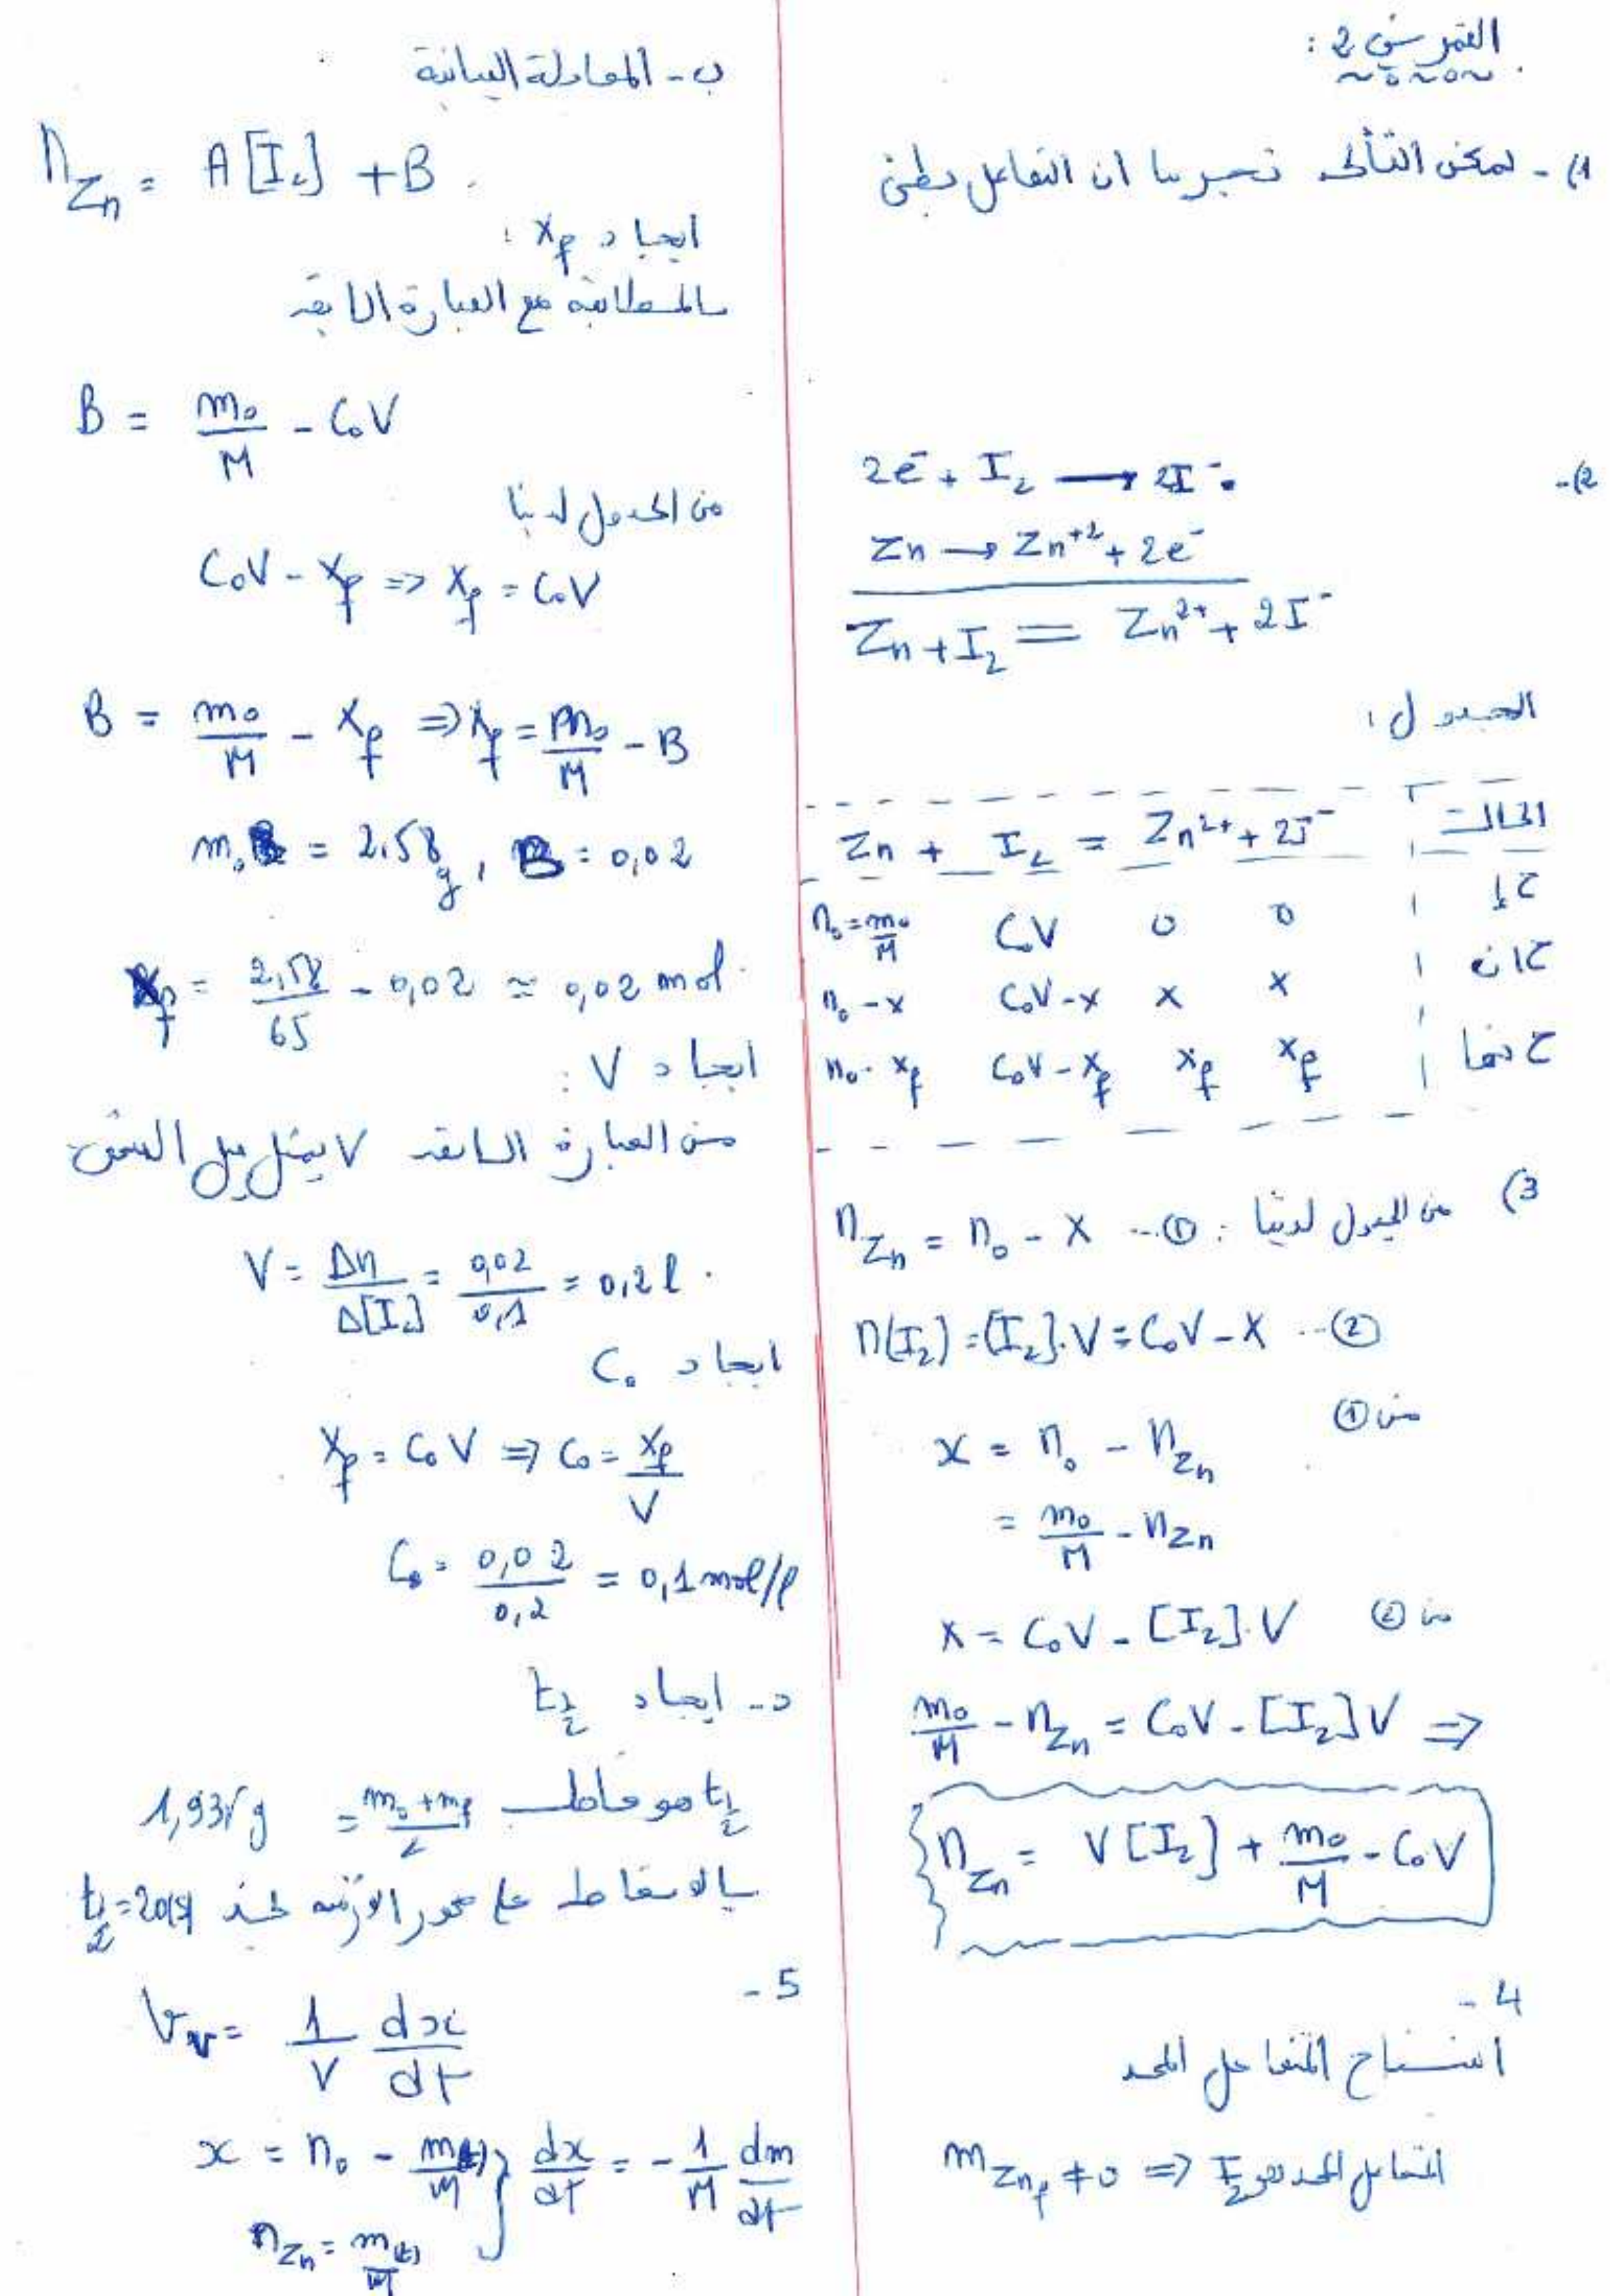 التمرين 2 :
1) - يمكن التأكد تجريبيا ان التفاعل بطئ
2) -
2e⁻ + I₂ → 2I⁻
Zn → Zn⁺² + 2e⁻
Zn + I₂ = Zn²⁺ + 2I⁻
الجدول :
الحالة | Zn + I₂ = Zn²⁺ + 2I⁻
ح إ | n₀ = m₀/M C₀V 0 0
ح ان | n₀ - x C₀V - x x x
ح نها | n₀ - xf C₀V - xf xf xf
3) من الجدول لدينا : n_Zn = n₀ - x ...①
n(I₂) = [I₂].V = C₀V - x ...②
من ① x = n₀ - n_Zn
= m₀/M - n_Zn
من ② x = C₀V - [I₂].V
m₀/M - n_Zn = C₀V - [I₂]V ⇒
n_Zn = V[I₂] + m₀/M - C₀V
4 -
استنتاج المتفاعل المحد
m_Znf ≠ 0 ⇒ المتفاعل المحد هو I₂
ب - المعادلة البيانية
n_Zn = A[I₂] + B
ايجاد xf :
بالمطابقة مع العبارة السابقة
B = m₀/M - C₀V
من الجدول لدينا
C₀V - xf ⇒ xf = C₀V
B = m₀/M - xf ⇒ xf = m₀/M - B
m₀ = 2,58g , B = 0,02
xf = 2,58/65 - 0,02 ≃ 0,02 mol
ايجاد V :
من العبارة السابقة V يمثل ميل المنحنى
V = Δn/Δ[I₂] = 0,02/0,1 = 0,2 l .
ايجاد C₀
xf = C₀V ⇒ C₀ = xf/V
C₀ = 0,02/0,2 = 0,1 mol/l
د - ايجاد t½
t½ هو (m₀ + mf)/2 = 1,935 g
بالاسقاط على محور الازمنة نجد t½ =
5 -
Vv = 1/V dx/dt
x = n₀ - m(t)/M } dx/dt = - 1/M dm/dt
n_Zn = m(t)/M